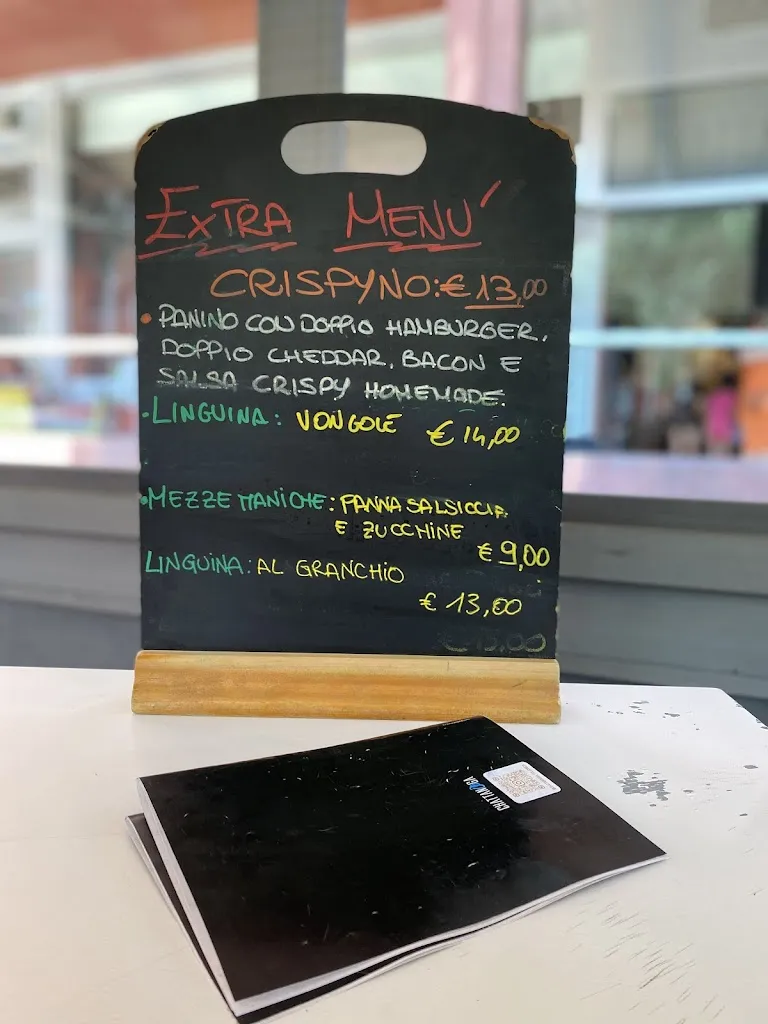 EXTRA MENU'
CRISPYNO: € 13,00
• PANINO CON DOPPIO HAMBURGER,
DOPPIO CHEDDAR, BACON E
SALSA CRISPY HOMEMADE.
• LINGUINA: VONGOLE € 14,00
• MEZZE MANICHE: PANNA SALSICCIA
E ZUCCHINE
€ 9,00
LINGUINA: AL GRANCHIO
€ 13,00
€ 15.00
CHATTANOOGA